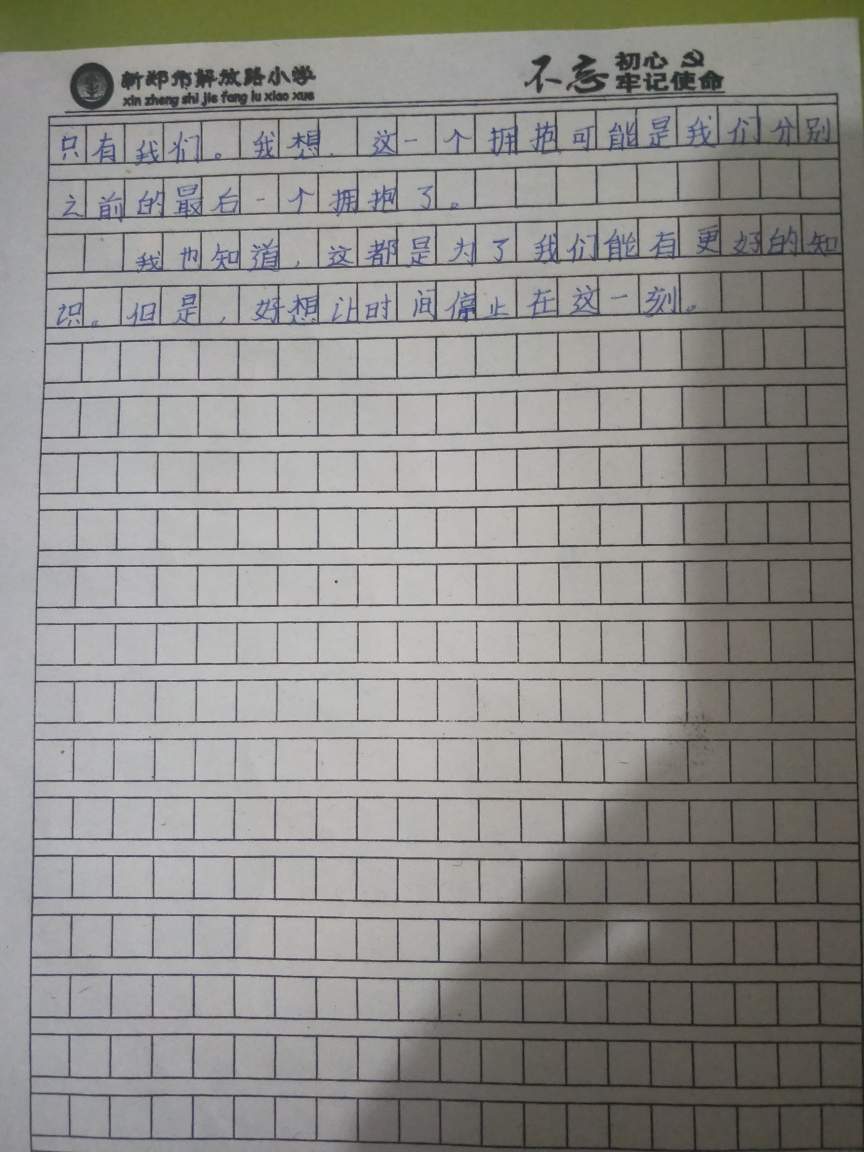 新郑市解放路小学
xin zheng shi jie fang lu xiao xue
不忘 初心
牢记使命
只有我们。我想，这一个拥抱可能是我们分别
之前的最后一个拥抱了。
我也知道，这都是为了我们能有更好的知
识。但是，好想让时间停止在这一刻。